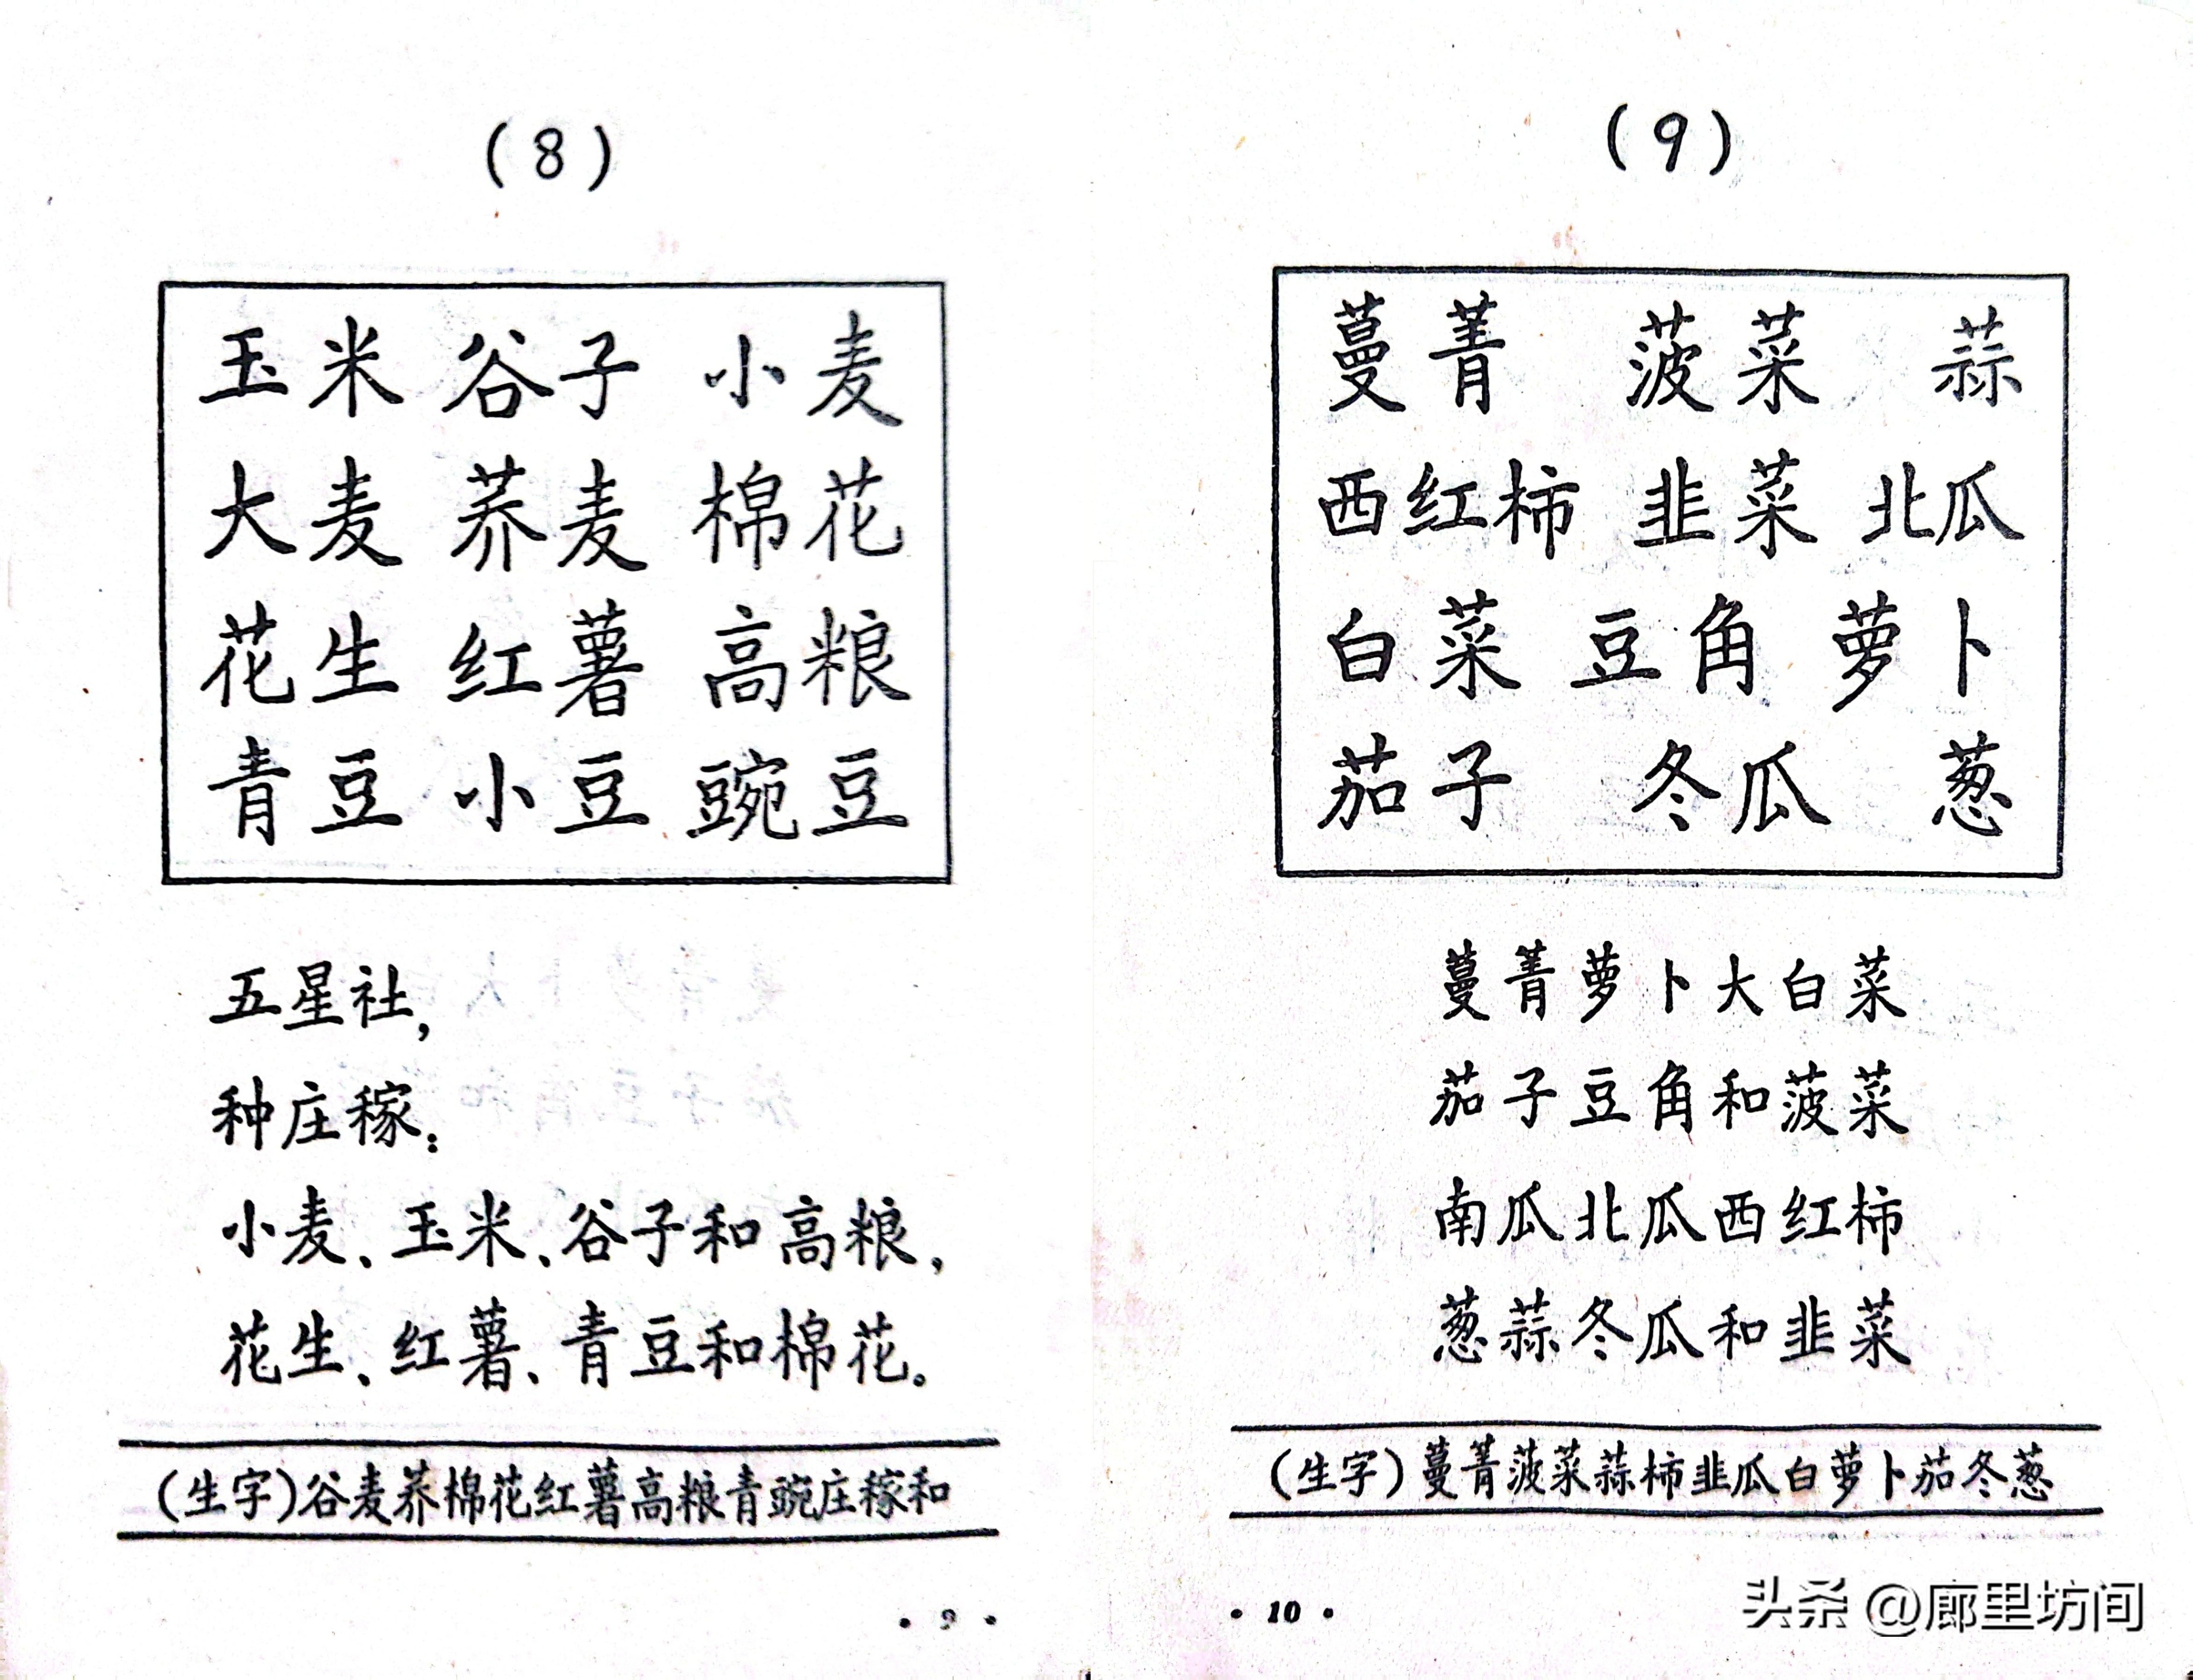 (8)
玉米 谷子 小麦
大麦 荞麦 棉花
花生 红薯 高粮
青豆 小豆 豌豆
五星社，
种庄稼：
小麦、玉米、谷子和高粮，
花生、红薯、青豆和棉花。
(生字)谷麦荞棉花红薯高粮青豌庄稼和
· 9 ·
(9)
蔓菁 菠菜 蒜
西红柿 韭菜 北瓜
白菜 豆角 萝卜
茄子 冬瓜 葱
蔓菁萝卜大白菜
茄子豆角和菠菜
南瓜北瓜西红柿
葱蒜冬瓜和韭菜
(生字)蔓菁菠菜蒜柿韭瓜白萝卜茄冬葱
· 10 ·
头条 @廊里坊间